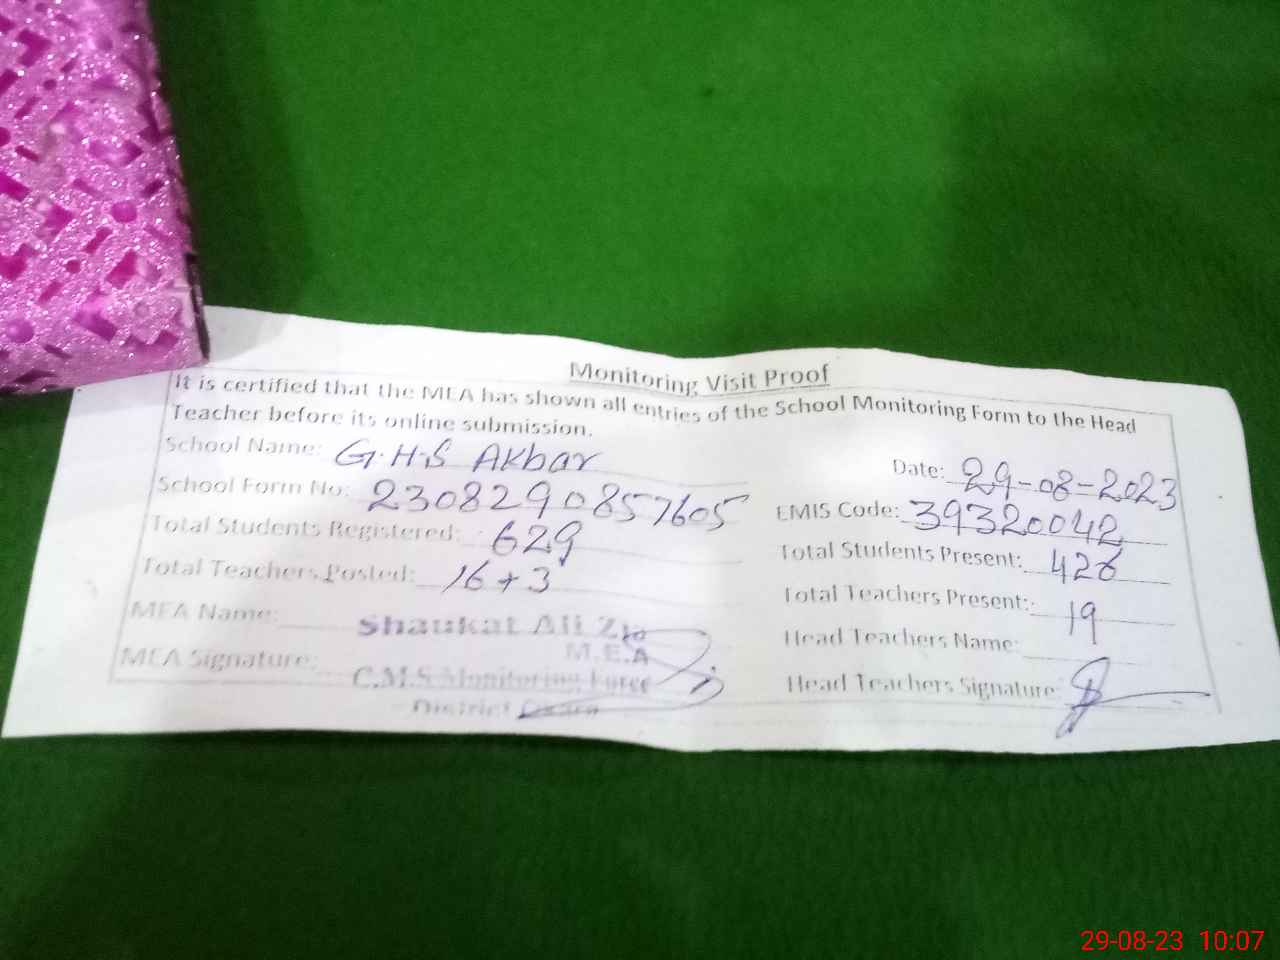 Monitoring Visit Proof
It is certified that the MEA has shown all entries of the School Monitoring Form to the Head
Teacher before its online submission.
School Name: G.H.S Akbar
Date: 29-08-2023
School Form No: 2308290857605
EMIS Code: 39320042
Total Students Registered: 629
Total Students Present: 426
Total Teachers Posted: 16 + 3
Total Teachers Present: 19
MEA Name: Shaukat Ali Zia
M.E.A
Head Teachers Name:
MEA Signature:
C.M.S Monitoring Force
Head Teachers Signature:
District Okara
29-08-23 10:07